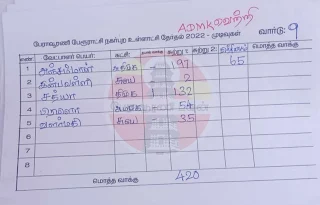 ADMK வெற்றி
பேராவூரணி பேரூராட்சி நகர்புற உள்ளாட்சி தேர்தல் 2022 - முடிவுகள் வார்டு: 9
எண் வேட்பாளர் பெயர்: கட்சி: சுற்று 1: சுற்று 2: மொத்த வாக்கு
1 அதிமுக - 197 65
2 சுயே - 2
3 சத்யா திமுக 1 132
4 அமமுக - 54
5 சுயே - 35
6
7
8
மொத்த வாக்கு 420